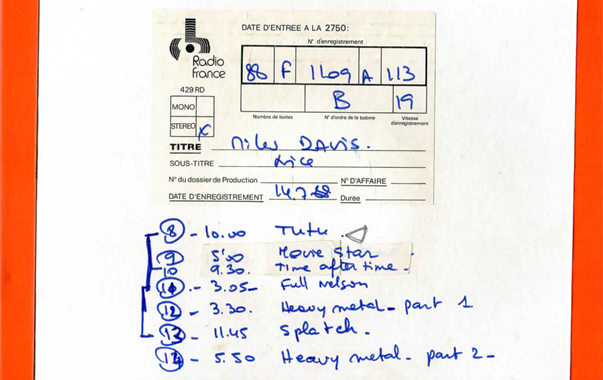 DATE D'ENTREE A LA 2750:
N° d'enregistrement
Radio
France
88 F 1109 A 113
429 RD
B 19
MONO
Nombre de boites N° d'ordre de la bobine Vitesse d'enregistrement
STEREO x
TITRE Miles DAVIS.
SOUS-TITRE Nice
N° du dossier de Production N° D'AFFAIRE
DATE D'ENREGISTREMENT 14.7.88 Durée
8 - 10.00 TUTU.
9 5'00 Movie Star.
10 9.30. Time after time.
11 - 3.05 - Full Nelson
12 - 3.30. Heavy metal - part 1
13 - 11.45 Splatch.
14 - 5.50 Heavy metal - part 2 -